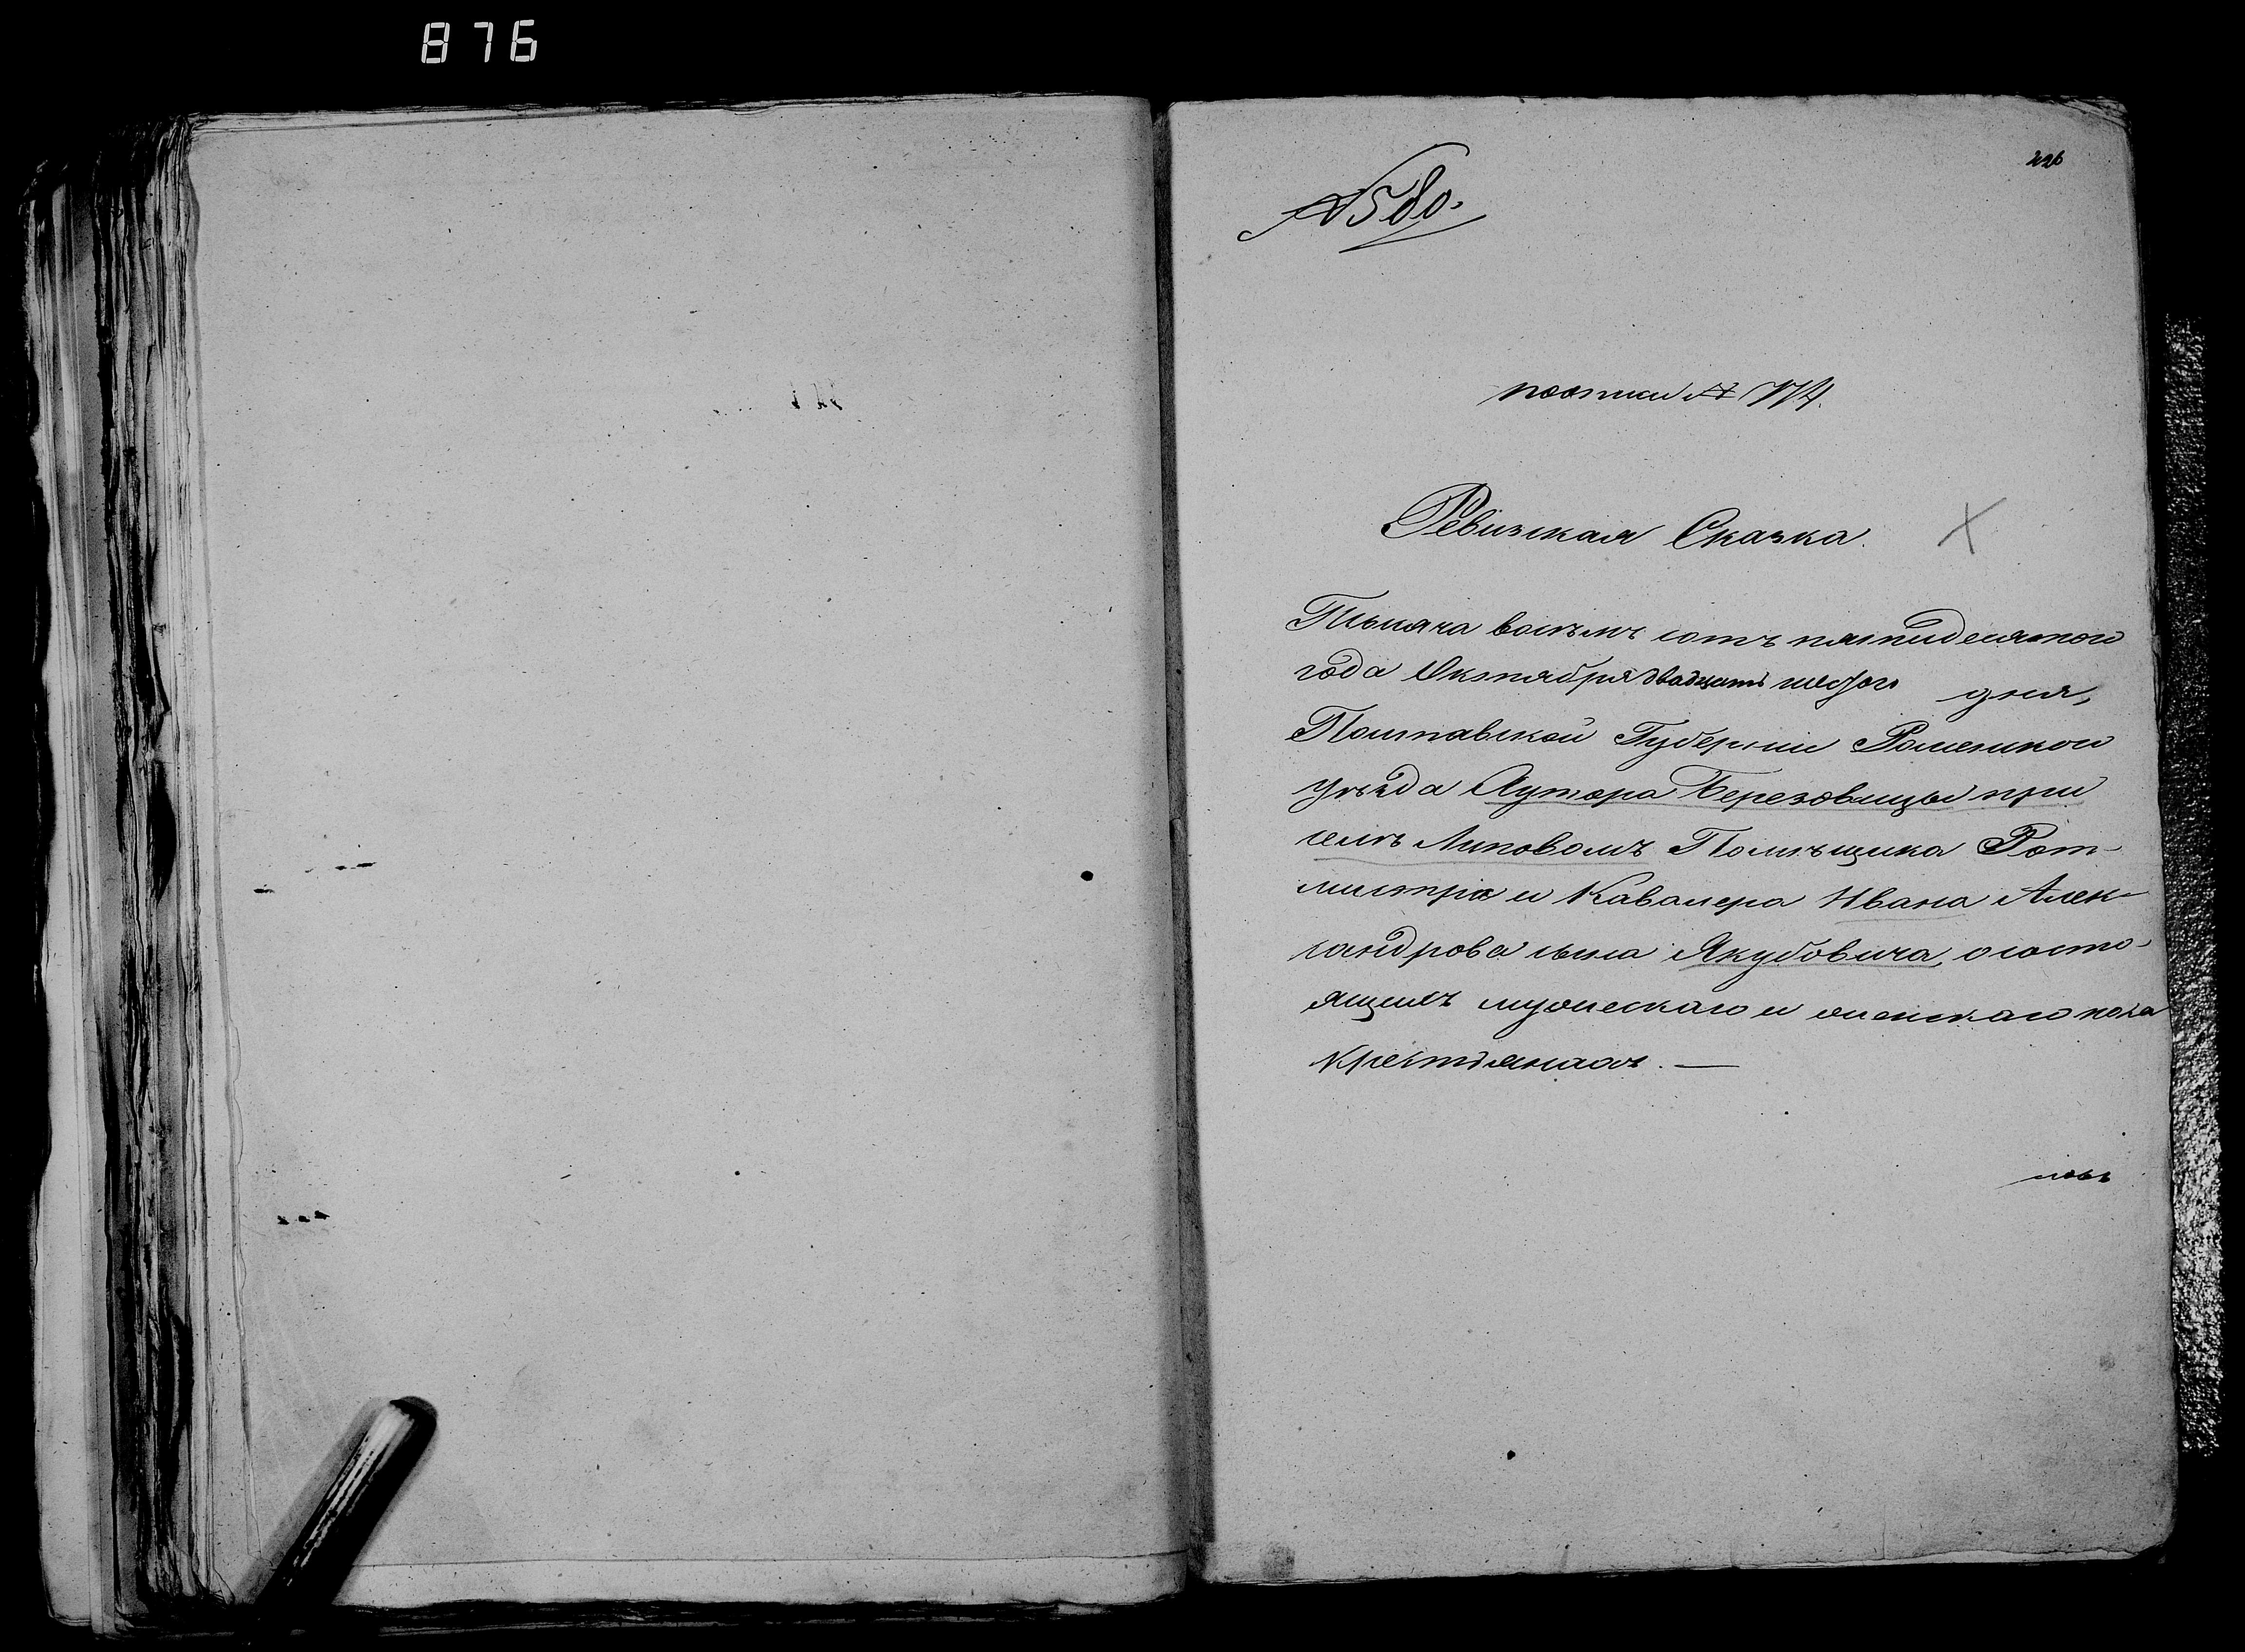 876
426
№ 580.
по описи № 174.
Ревизская Сказка.
Тысяча восемъ сотъ пятидесятого
года Октября двадцать шестого дня,
Полтавской Губернии Роменского
уѣзда Хутора Березовицы при
селѣ Липовомъ Помѣщика Рот-
мистра и Кавалера Ивана Алек-
сандрова сына Якубовича, о состо-
ящихъ мужескаго и женскаго пола
крестьянахъ. —